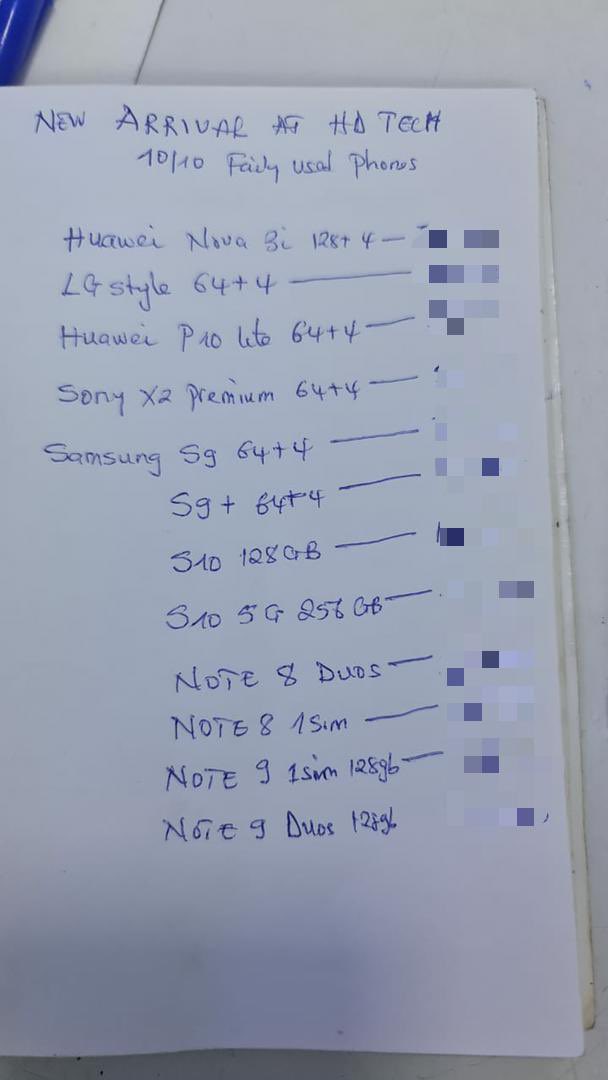 NEW ARRIVAL AT HD TECH
10/10 Fairly used Phones
Huawei Nova 3i 128+4 —
LG style 64+4 —
Huawei P10 lite 64+4 —
Sony X2 premium 64+4 —
Samsung S9 64+4 —
S9+ 64+4 —
S10 128GB —
S10 5G 256GB —
NOTE 8 Duos —
NOTE 8 1Sim —
NOTE 9 1sim 128gb —
NOTE 9 Duos 128gb